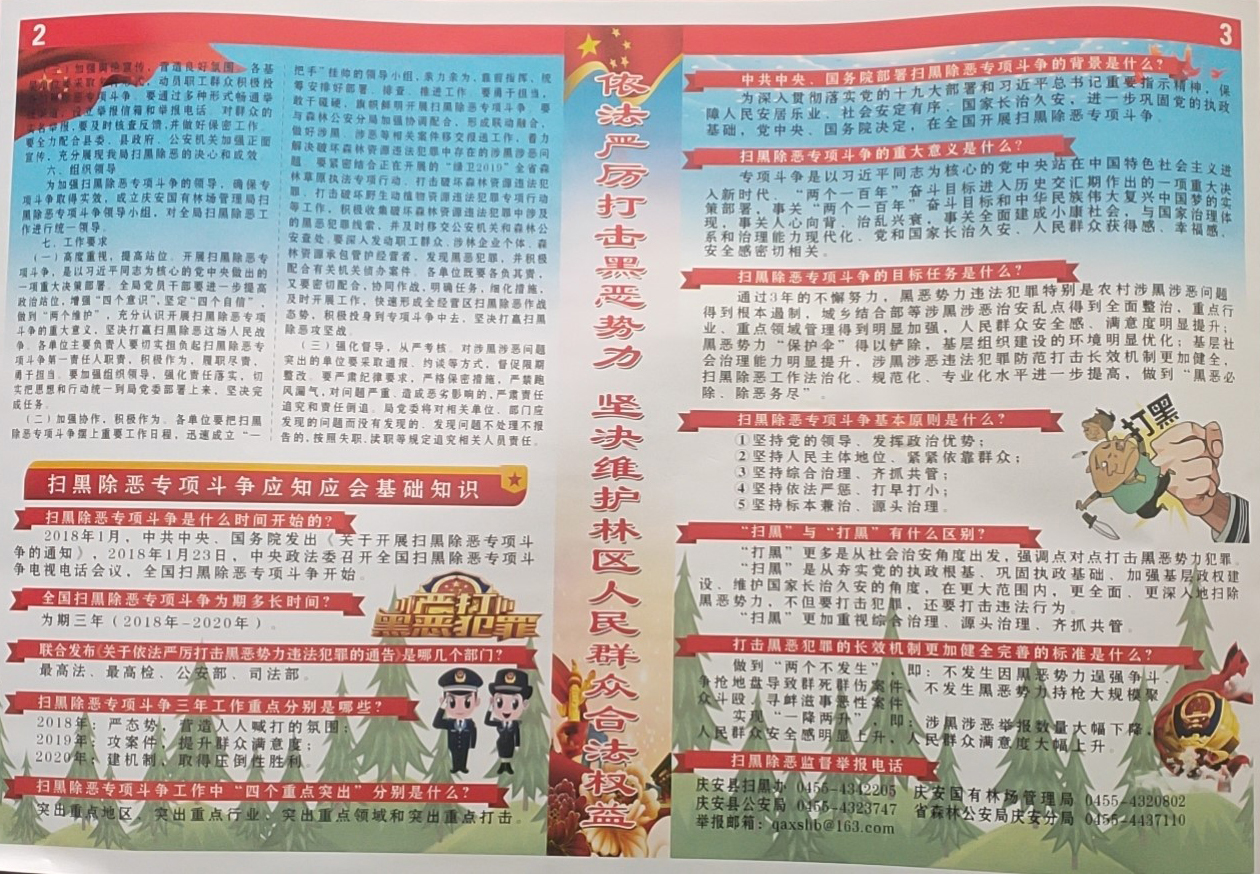 2
(三)加强舆论宣传,营造良好氛围。各基
层单位要采取多种形式,动员职工群众积极投
要通过多种形式畅通举
设立举报信箱和举报电话。对群众的
举报,要及时核查反馈,并做好保密工作。
要全力配合县委、县政府、公安机关加强正面
宣传,充分展现我局扫黑除恶的决心和成效。
六、组织领导
为加强扫黑除恶专项斗争的领导,确保专
项斗争取得实效,成立庆安国有林场管理局扫
黑除恶专项斗争领导小组,对全局扫黑除恶工
作进行统一领导。
七、工作要求
(一)高度重视,提高站位。开展扫黑除恶专
项斗争,是以习近平同志为核心的党中央做出的
一项重大决策部署。全局党员干部要进一步提高
政治站位,增强“四个意识”、坚定“四个自信”、
做到“两个维护”,充分认识开展扫黑除恶专项
斗争的重大意义,坚决打赢扫黑除恶这场人民战
争。各单位主要负责人要切实担负起扫黑除恶专
项斗争第一责任人职责,积极作为,履职尽责,
勇于担当。要加强组织领导,强化责任落实,切
实把思想和行动统一到局党委部署上来,坚决完
成任务。
(二)加强协作,积极作为。各单位要把扫黑
除恶专项斗争摆上重要工作日程,迅速成立“一
把手”挂帅的领导小组,亲力亲为,靠前指挥,统
筹安排好部署、排查、推进工作。要勇于担当,
敢于碰硬,旗帜鲜明开展扫黑除恶专项斗争。要
与森林公安分局加强协调配合,形成联动融合、
做好涉黑、涉恶等相关案件移交报送工作,着力
解决破坏森林资源违法犯罪中存在的涉黑涉恶问
题。要紧密结合正在开展的“绿卫2019”全省森
林草原执法专项行动、打击破坏森林资源违法犯
罪、打击破坏野生动植物资源违法犯罪专项行动
等工作,积极收集破坏森林资源违法犯罪中涉及
的黑恶犯罪线索,并及时移交公安机关和森林公
安查处。要深入发动职工群众、涉林企业个体、森
林资源承包管护经营者,发现黑恶犯罪,并积极
配合有关机关侦办案件。各单位既要各负其责,
又要密切配合,协同作战,明确任务,细化措施,
及时开展工作,快速形成全经营区扫黑除恶作战
态势,积极投身到专项斗争中去,坚决打赢扫黑
除恶攻坚战。
(三)强化督导,从严考核。对涉黑涉恶问题
突出的单位要采取通报、约谈等方式,督促限期
整改。要严肃纪律要求,严格保密措施,严禁跑
风漏气,对问题严重、造成恶劣影响的,严肃责任
追究和责任倒追。局党委将对相关单位、部门应
发现的问题而没有发现的、发现问题不处理不报
告的,按照失职、渎职等规定追究相关人员责任。
扫黑除恶专项斗争应知应会基础知识
扫黑除恶专项斗争是什么时间开始的?
2018年1月,中共中央、国务院发出《关于开展扫黑除恶专项斗
争的通知》,2018年1月23日,中央政法委召开全国扫黑除恶专项斗
争电视电话会议,全国扫黑除恶专项斗争开始。
全国扫黑除恶专项斗争为期多长时间?
为期三年(2018年-2020年)。
严打
黑恶犯罪
联合发布《关于依法严厉打击黑恶势力违法犯罪的通告》是哪几个部门?
最高法、最高检、公安部、司法部。
扫黑除恶专项斗争三年工作重点分别是哪些?
2018年:严态势,营造人人喊打的氛围;
2019年:攻案件,提升群众满意度;
2020年:建机制,取得压倒性胜利。
扫黑除恶专项斗争工作中“四个重点突出”分别是什么?
突出重点地区、突出重点行业、突出重点领域和突出重点打击。
依法严厉打击黑恶势力 坚决维护林区人民群众合法权益
3
中共中央、国务院部署扫黑除恶专项斗争的背景是什么?
为深入贯彻落实党的十九大部署和习近平总书记重要指示精神,保
障人民安居乐业、社会安定有序、国家长治久安,进一步巩固党的执政
基础,党中央、国务院决定,在全国开展扫黑除恶专项斗争。
扫黑除恶专项斗争的重大意义是什么?
专项斗争是以习近平同志为核心的党中央站在中国特色社会主义进
入新时代、“两个一百年”奋斗目标进入历史交汇期作出的一项重大决
策部署,事关“两个一百年”奋斗目标和中华民族伟大复兴中国梦的实
现,事关人心向背、治乱兴衰,事关全面建成小康社会,与国家治理体
系和治理能力现代化、党和国家长治久安、人民群众获得感、幸福感、
安全感密切相关。
扫黑除恶专项斗争的目标任务是什么?
通过3年的不懈努力,黑恶势力违法犯罪特别是农村涉黑涉恶问题
得到根本遏制,城乡结合部等涉黑涉恶治安乱点得到全面整治,重点行
业、重点领域管理得到明显加强,人民群众安全感、满意度明显提升;
黑恶势力“保护伞”得以铲除,基层组织建设的环境明显优化;基层社
会治理能力明显提升,涉黑涉恶违法犯罪防范打击长效机制更加健全,
扫黑除恶工作法治化、规范化、专业化水平进一步提高,做到“黑恶必
除、除恶务尽”。
扫黑除恶专项斗争基本原则是什么?
①坚持党的领导、发挥政治优势;
②坚持人民主体地位、紧紧依靠群众;
③坚持综合治理、齐抓共管;
④坚持依法严惩、打早打小;
⑤坚持标本兼治、源头治理。
打黑
“扫黑”与“打黑”有什么区别?
“打黑”更多是从社会治安角度出发,强调点对点打击黑恶势力犯罪。
“扫黑”是从夯实党的执政根基、巩固执政基础、加强基层政权建
设、维护国家长治久安的角度,在更大范围内,更全面、更深入地扫除
黑恶势力,不但要打击犯罪,还要打击违法行为。
“扫黑”更加重视综合治理、源头治理、齐抓共管。
打击黑恶犯罪的长效机制更加健全完善的标准是什么?
做到“两个不发生”,即:不发生因黑恶势力逞强争斗、
争抢地盘导致群死群伤案件,不发生黑恶势力持枪大规模聚
众斗殴、寻衅滋事恶性案件。
实现“一降两升”,即:涉黑涉恶举报数量大幅下降,
人民群众安全感明显上升,人民群众满意度大幅上升。
扫黑除恶监督举报电话
庆安县扫黑办 0455-4342205 庆安国有林场管理局 0455-4320802
庆安县公安局 0455-4323747 省森林公安局庆安分局 0455-4437110
举报邮箱:qaxshb@163.com